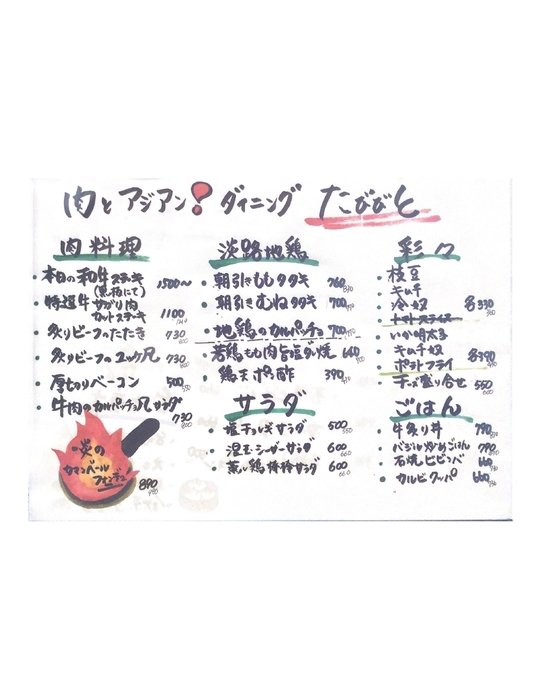 肉とアジアン!ダイニング たびびと
肉料理
・本日の和牛ステキ 1500〜
(黒板にて)
・特選牛サガリ肉
カットステーキ 1100
・炙りビーフのたたき 730
・炙りビーフのユッケ風 730
800
・厚切りベーコン 500
550
・牛肉のカルパッチョ風サラダ
730
800
炎の
カマンベール
フォンデュ!
890
淡路地鶏
・朝引きももタタキ 760
・朝引きむねタタキ 700
・地鶏のカルパッチョ 700
・若鶏もも肉旨塩ダレ焼 660
・鶏天ポン酢 390
サラダ
・塩チョレギサラダ 500
550
・温玉シーザーサラダ 600
660
・蒸し鶏棒棒サラダ 600
660
彩々
・枝豆
・キムチ
・冷奴 各330
・トマトスライス
・いか明太子
・キムチ奴 各390
・ポテトフライ
・チーズ盛り合せ 550
600
ごはん
・牛炙り丼 790
・バジル炒めごはん 790
・石焼ビビンバ 660
・カルビクッパ 660